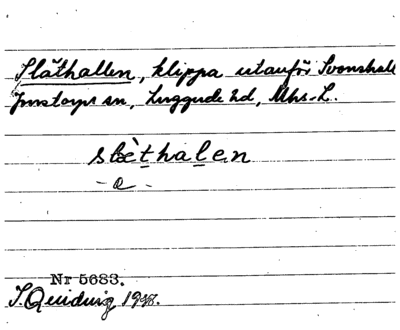 Släthallen, klippa utanför Svanshall
Jonstorps sn, Luggude hd, Mhs. L.
slèthalen
- a -
Nr 5683.
1928.